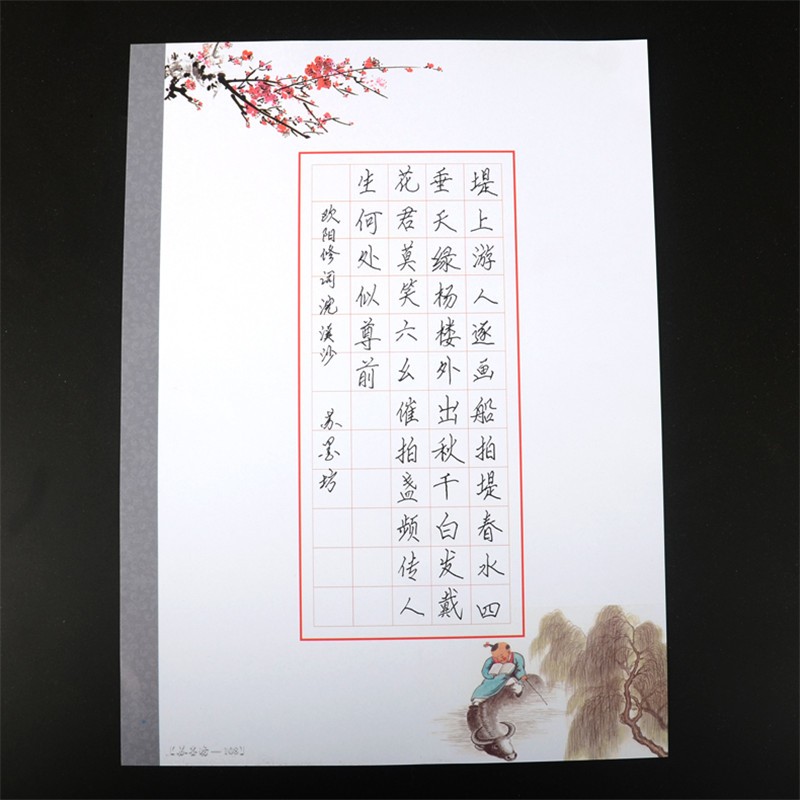 堤上游人逐画船拍堤春水四
垂天绿杨楼外出秋千白发戴
花君莫笑六幺催拍盏频传人
生何处似尊前
欧阳修词浣溪沙 苏墨坊
【苏墨坊—108】